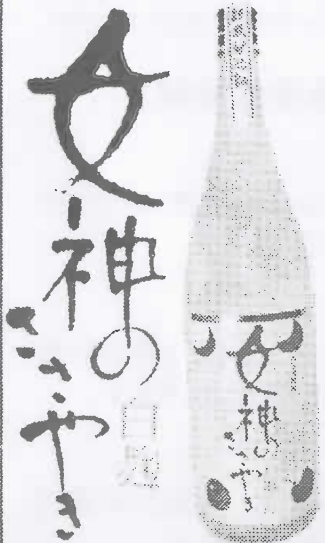 女神の
ささやき
女神の
ささやき